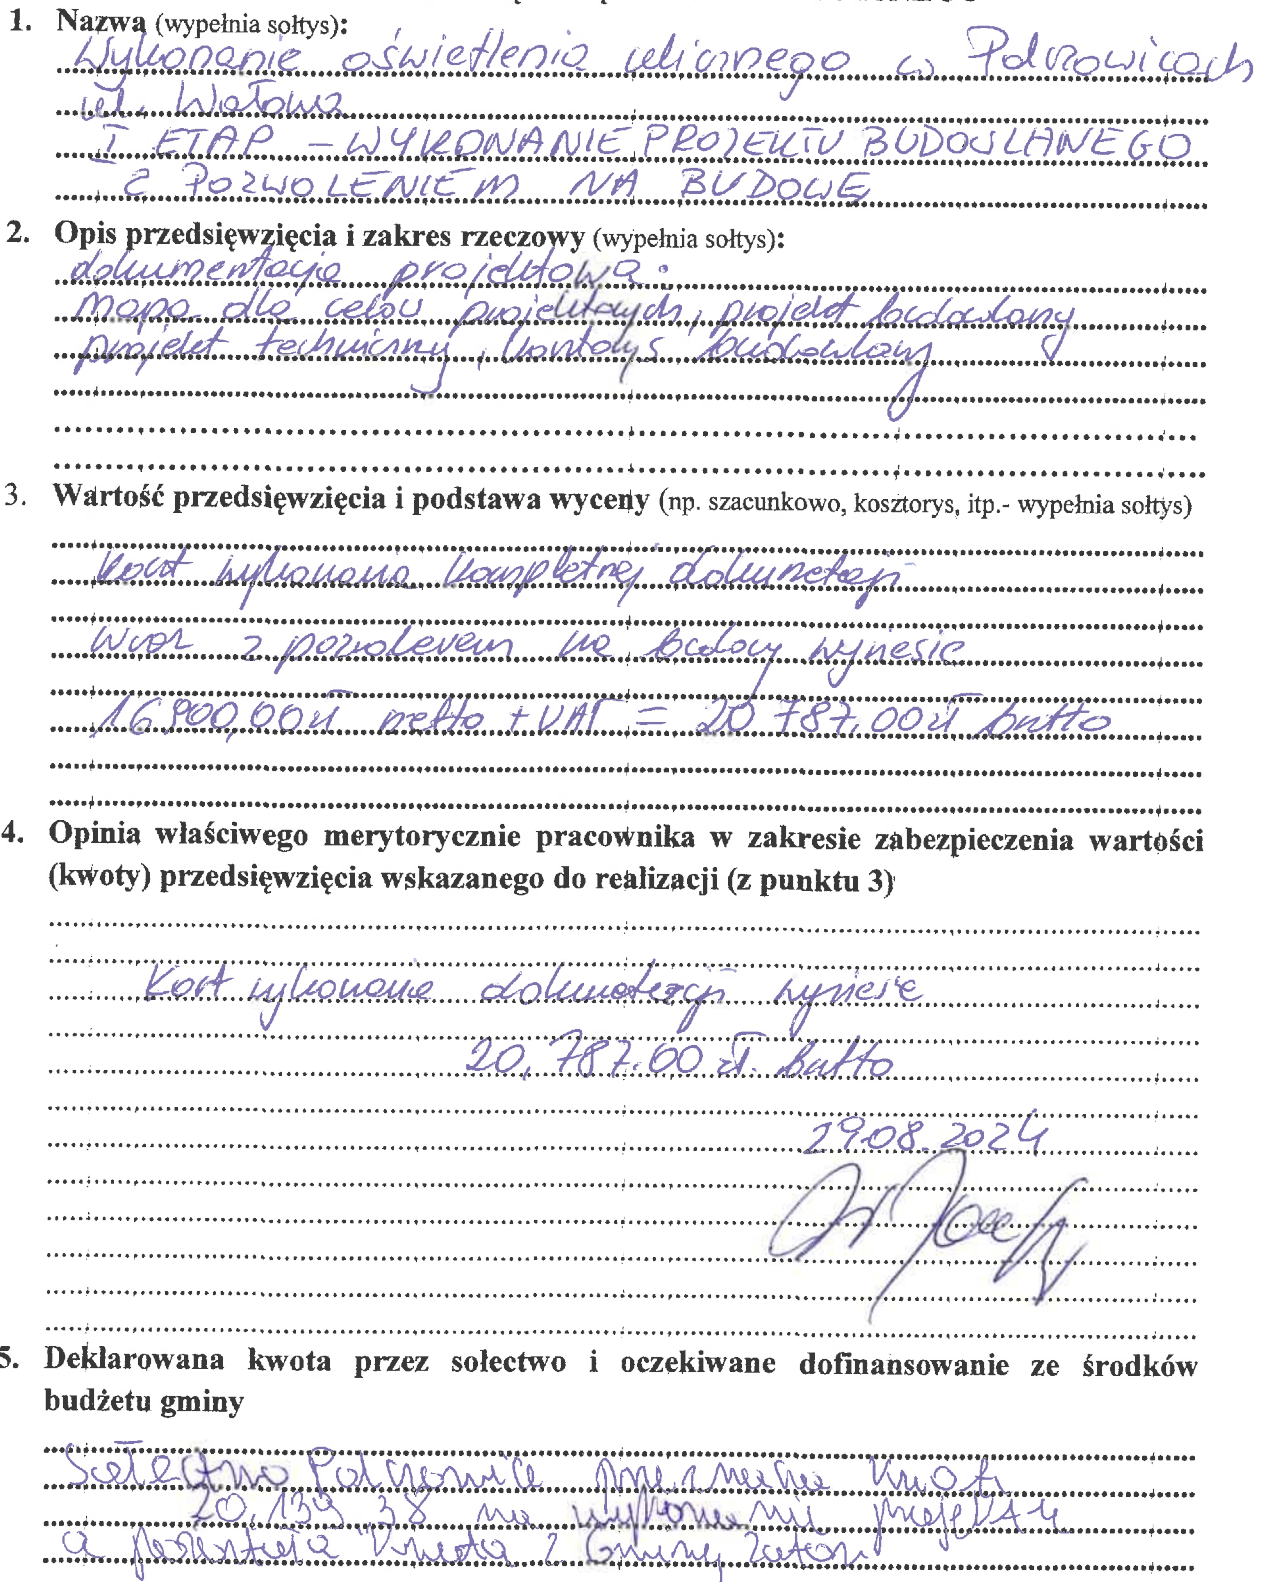 1. Nazwa (wypełnia sołtys):
Wykonanie oświetlenia ulicznego w Palczowicach
ul. Wałowa
I ETAP – WYKONANIE PROJEKTU BUDOWLANEGO
Z POZWOLENIEM NA BUDOWĘ
2. Opis przedsięwzięcia i zakres rzeczowy (wypełnia sołtys):
dokumentacja projektowa:
mapa dla celów projektowych, projekt budowlany
projekt techniczny, kosztorys budowlany
3. Wartość przedsięwzięcia i podstawa wyceny (np. szacunkowo, kosztorys, itp.- wypełnia sołtys)
Koszt wykonania kompletnej dokumentacji
wraz z pozwoleniem na budowę wyniesie
16 900,00 zł netto + VAT = 20 787,00 zł brutto
4. Opinia właściwego merytorycznie pracownika w zakresie zabezpieczenia wartości
(kwoty) przedsięwzięcia wskazanego do realizacji (z punktu 3)
Koszt wykonania dokumentacji wyniesie
20,787.00 zł. brutto
29.08.2024
5. Deklarowana kwota przez sołectwo i oczekiwane dofinansowanie ze środków
budżetu gminy
Sołectwo Palczowice przeznacza kwotę
20,139,38 na wykonanie projektu
a pozostała kwota z Gminy Zator